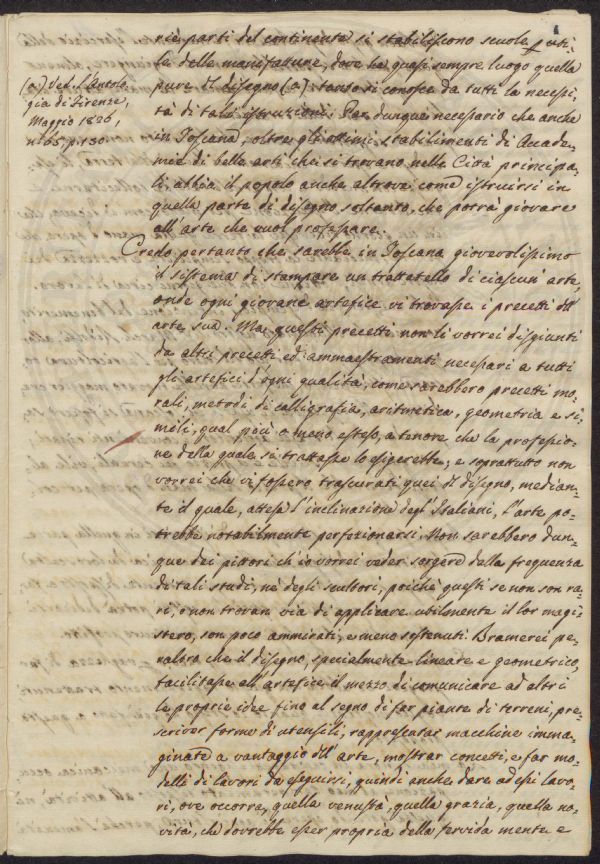 rie parti del continente si stabiliscono scuole util-
la delle manifatture, dove ha quasi sempre luogo quella
pure di disegno (a): tanto si conosce da tutti la necessi-
tà di tali istruzioni. Par dunque necessario che anche
in Toscana, oltre gli ottimi stabilimenti di Accade-
mie di belle arti che si trovano nelle Città principa-
li, abbia il popolo anche altrove come istruirsi in
quella parte di disegno soltanto, che potrà giovare
all'arte che vuol professare.
(a) Ved. l'Antolo
gia di Firenze,
Maggio 1826,
n. 65. p. 130.
Credo pertanto che sarebbe in Toscana giovevolissimo
il sistema di stampare un trattatello di ciascun'arte,
onde ogni giovane artefice vi trovasse i precetti dell'
arte sua. Ma questi precetti non li vorrei disgiunti
da altri precetti ed ammaestramenti necessari a tutti
gli artefici d'ogni qualità, come sarebbero precetti mo-
rali, metodi di calligrafia, aritmetica, geometria e si-
mili, qual più o meno esteso, a tenore che la professio-
ne della quale si trattasse lo esigerebbe; e soprattutto non
vorrei che vi fossero trascurati quei di disegno, median-
te il quale, attesa l'inclinazione degl'Italiani, l'arte po-
trebbe notabilmente perfezionarsi. Non sarebbero dun-
que dei pittori ch'io vorrei veder sorgere dalla frequenza
di tali studi, nè degli scultori, poichè questi se non son ra-
ri, o non trovan via di applicare utilmente il lor magi-
stero, son poco ammirati, e meno sostenuti. Bramerei pe-
raltro che il disegno, specialmente lineare e geometrico,
facilitasse all'artefice il mezzo di comunicare ad altri
le proprie idee fino al segno di far piante di terreni, pre-
scriver forme di utensili, rappresentar macchine imma-
ginate a vantaggio dell'arte, mostrar concetti, e far mo-
delli di lavori da eseguirsi, quindi anche dare ad essi lavo-
ri, ove occorra, quella venustà, quella grazia, quella no-
vità, che dovrebbe esser propria della fervida mente e